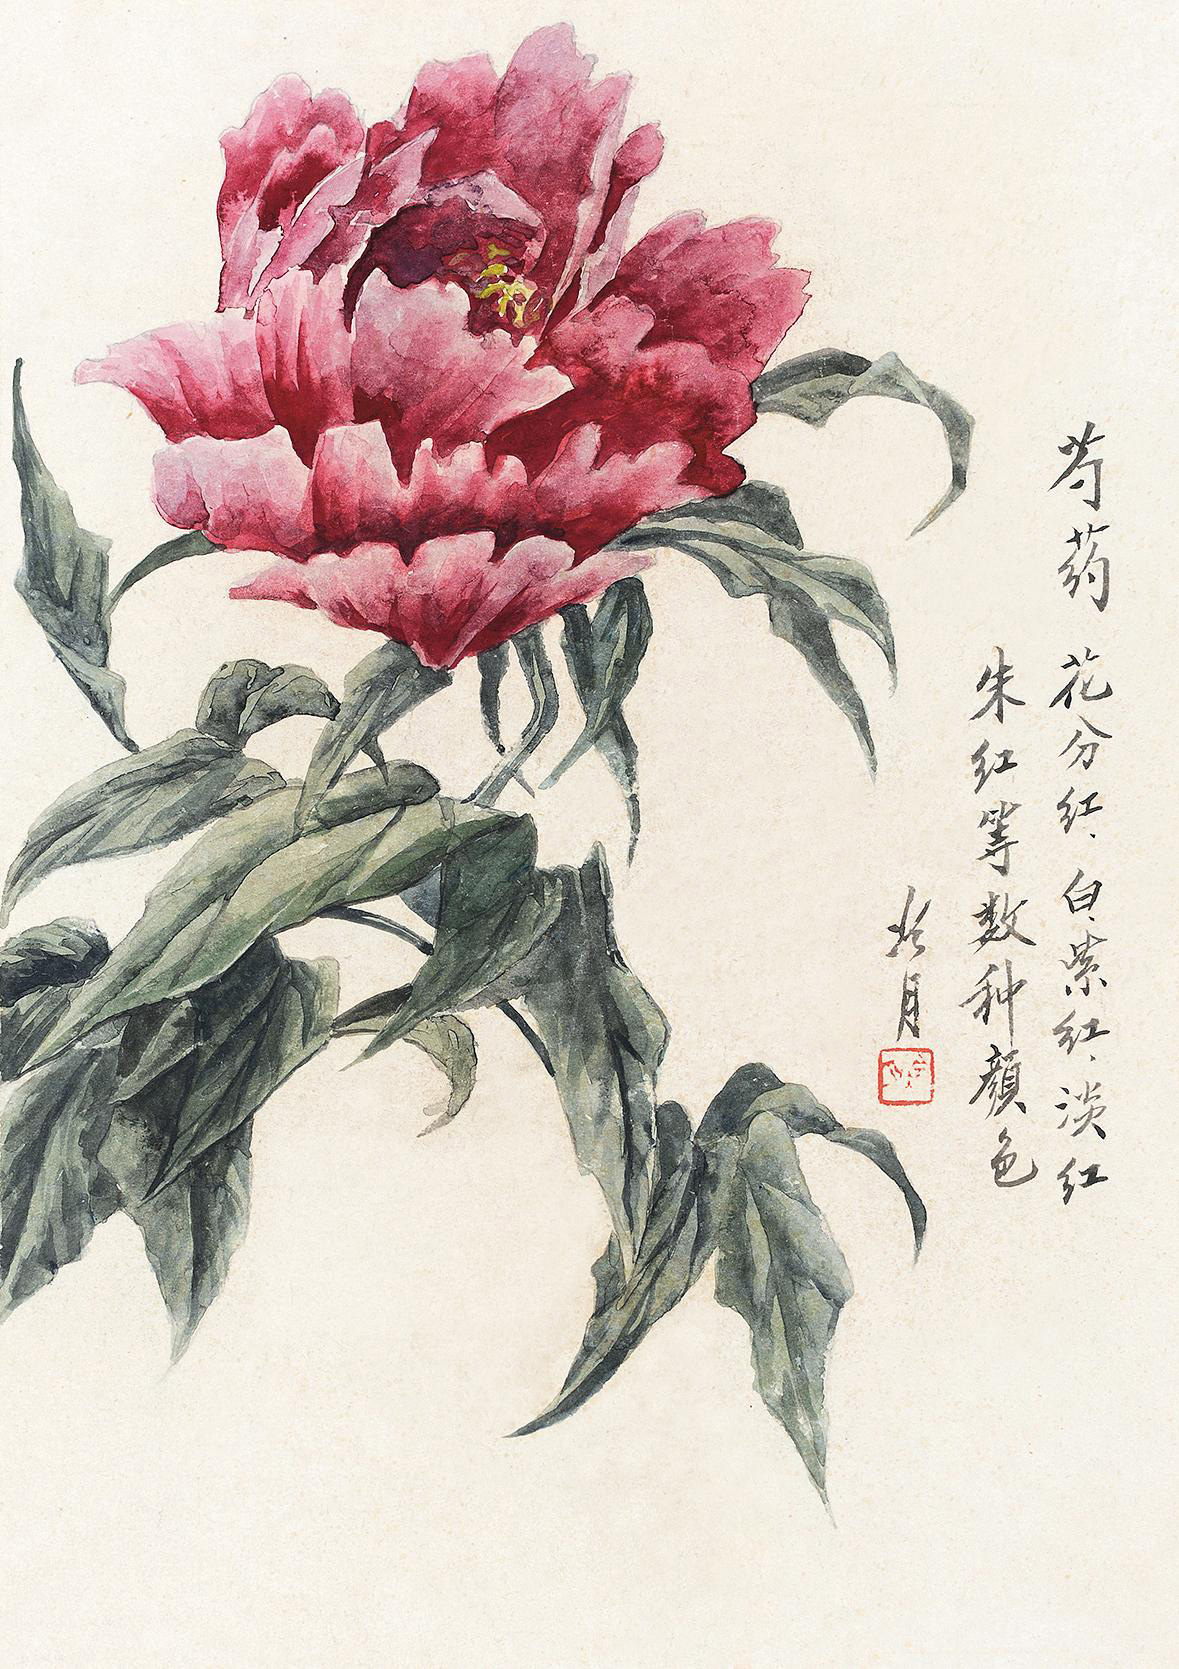 芍药 花分红、白、紫红、淡红
朱红等数种颜色
月